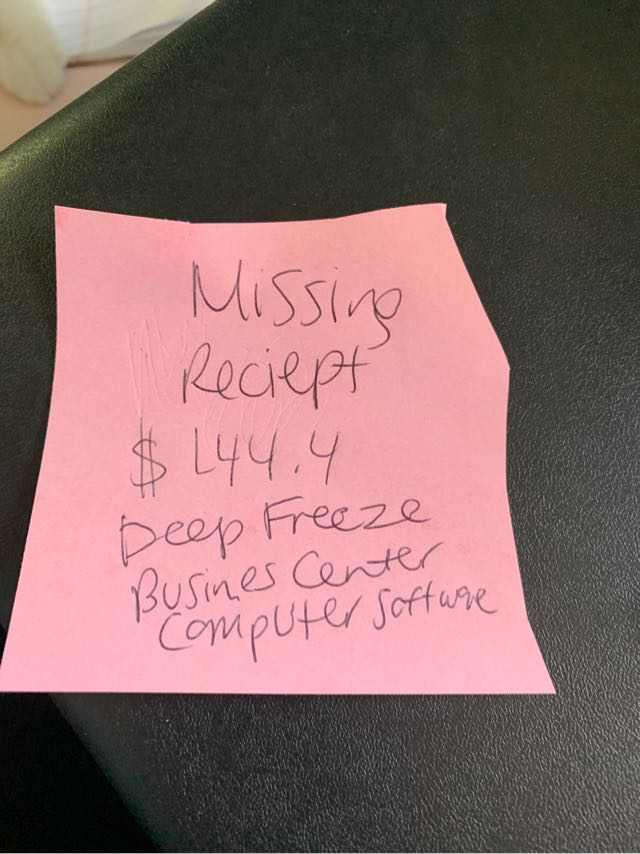 Missing
Reciept
$ 144.4
Deep Freeze
Busines Center
Computer Software